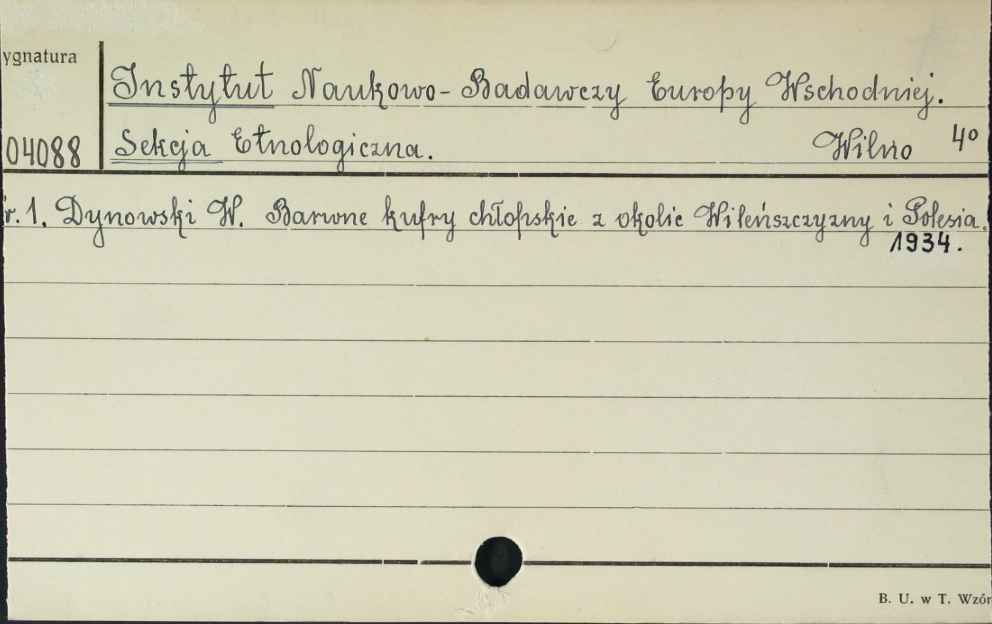 ygnatura
Instytut Naukowo-Badawczy Europy Wschodniej.
04088 Sekcja Etnologiczna. Wilno 4°
r. 1. Dynowski W. Barwne kufry chłopskie z okolic Wileńszczyzny i Polesia.
1934.
B. U. w T. Wzór